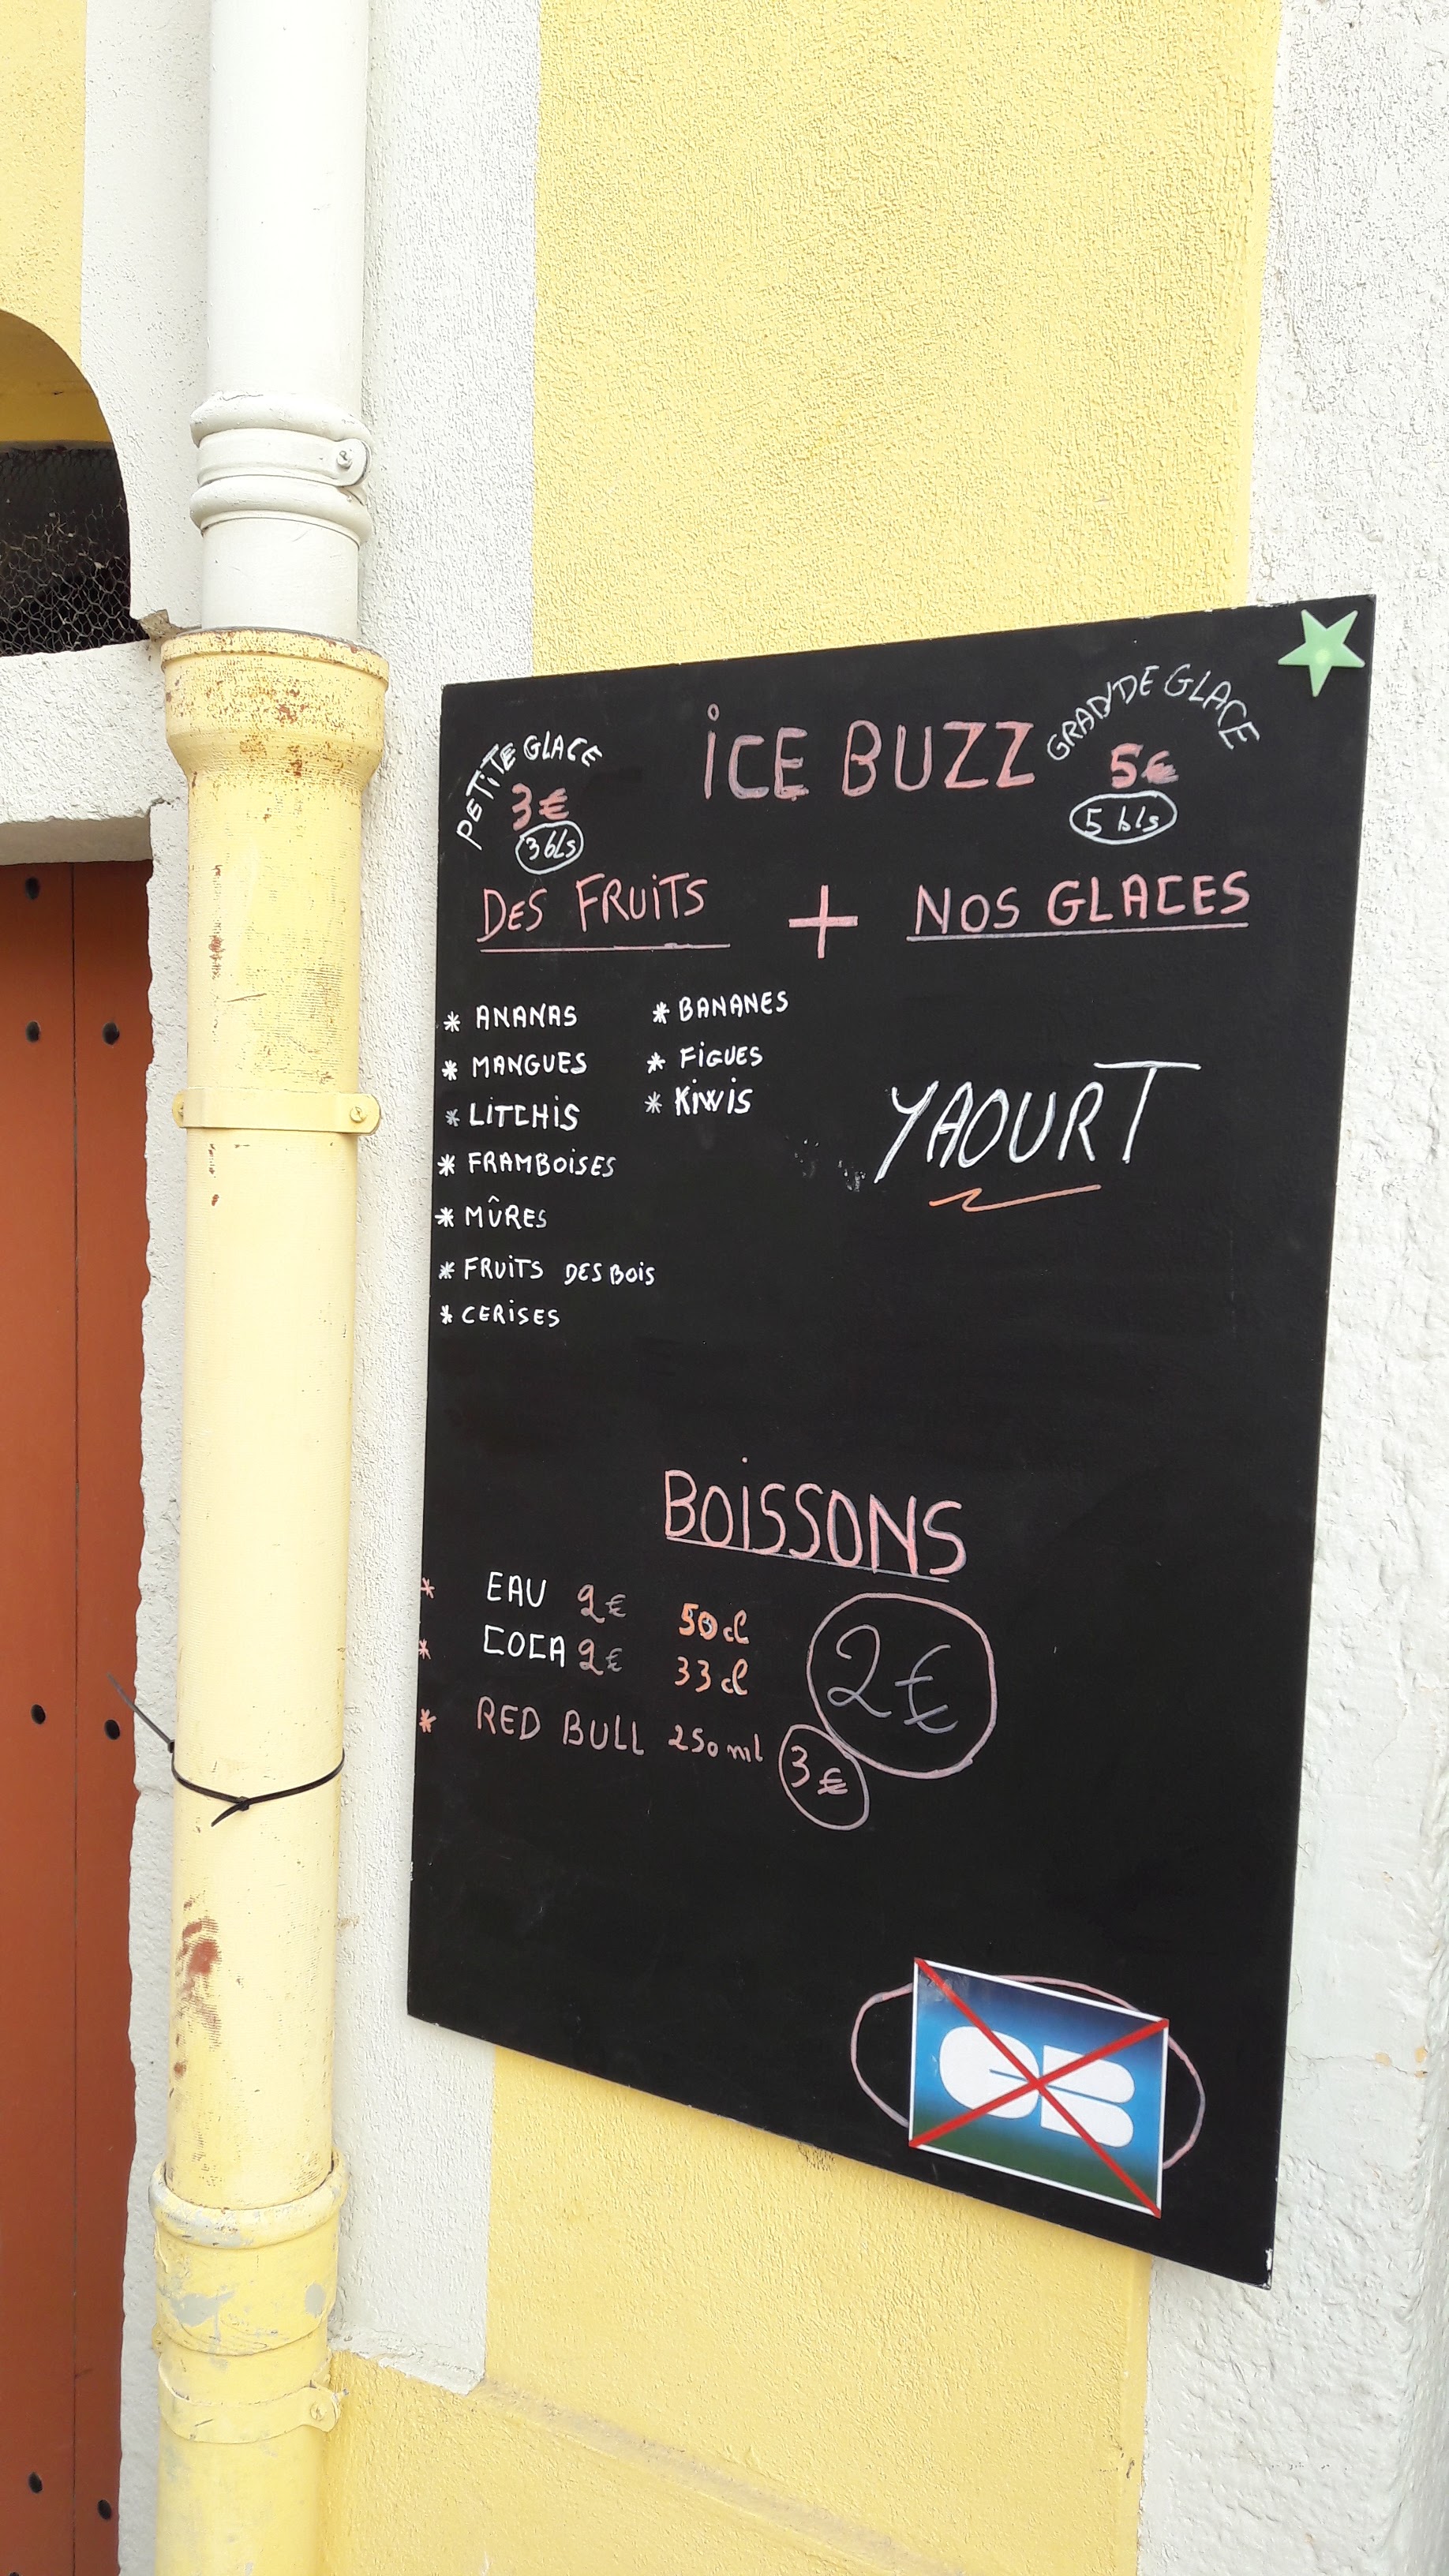 iCE BUZZ
PETITE GLACE
3€
3 bls
GRANDE GLACE
5€
5 bls
DES FRUiTS + NOS GLACES
* ANANAS
* MANGUES
* LiTCHiS
* FRAMBOiSES
* MÛRES
* FRUiTS DES BOiS
* CERiSES
* BANANES
* FiGUES
* KiWiS
YAOURT
BOiSSONS
* EAU 2€ 50 cl
* COCA 2€ 33 cl
2€
* RED BULL 250 ml 3€
CB